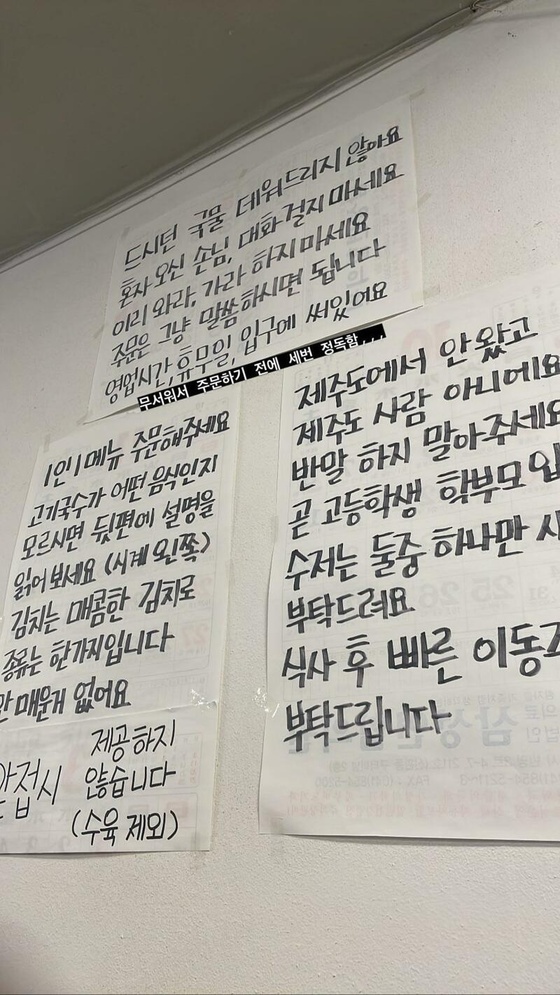 드시던 국물 데워드리지 않아요
혼자 오신 손님, 대화 걸지 마세요
이리 와라, 가라 하지마세요
주문은 그냥 말씀하시면 됩니다
영업시간,휴무일, 입구에 써있어요
무서워서 주문하기 전에 세번 정독함...
1인1메뉴 주문해주세요
고기국수가 어떤 음식인지
모르시면 뒷편에 설명을
읽어보세요 (시계 왼쪽)
김치는 매콤한 김치로
종류는 한가지입니다
안 매운게 없어요
앞접시 제공하지
않습니다
(수육 제외)
제주도에서 안왔고
제주도 사람 아니에요
반말 하지 말아주세요
곧 고등학생 학부모입
수저는 둘중 하나만 사
부탁드려요
식사 후 빠른 이동
부탁드립니다